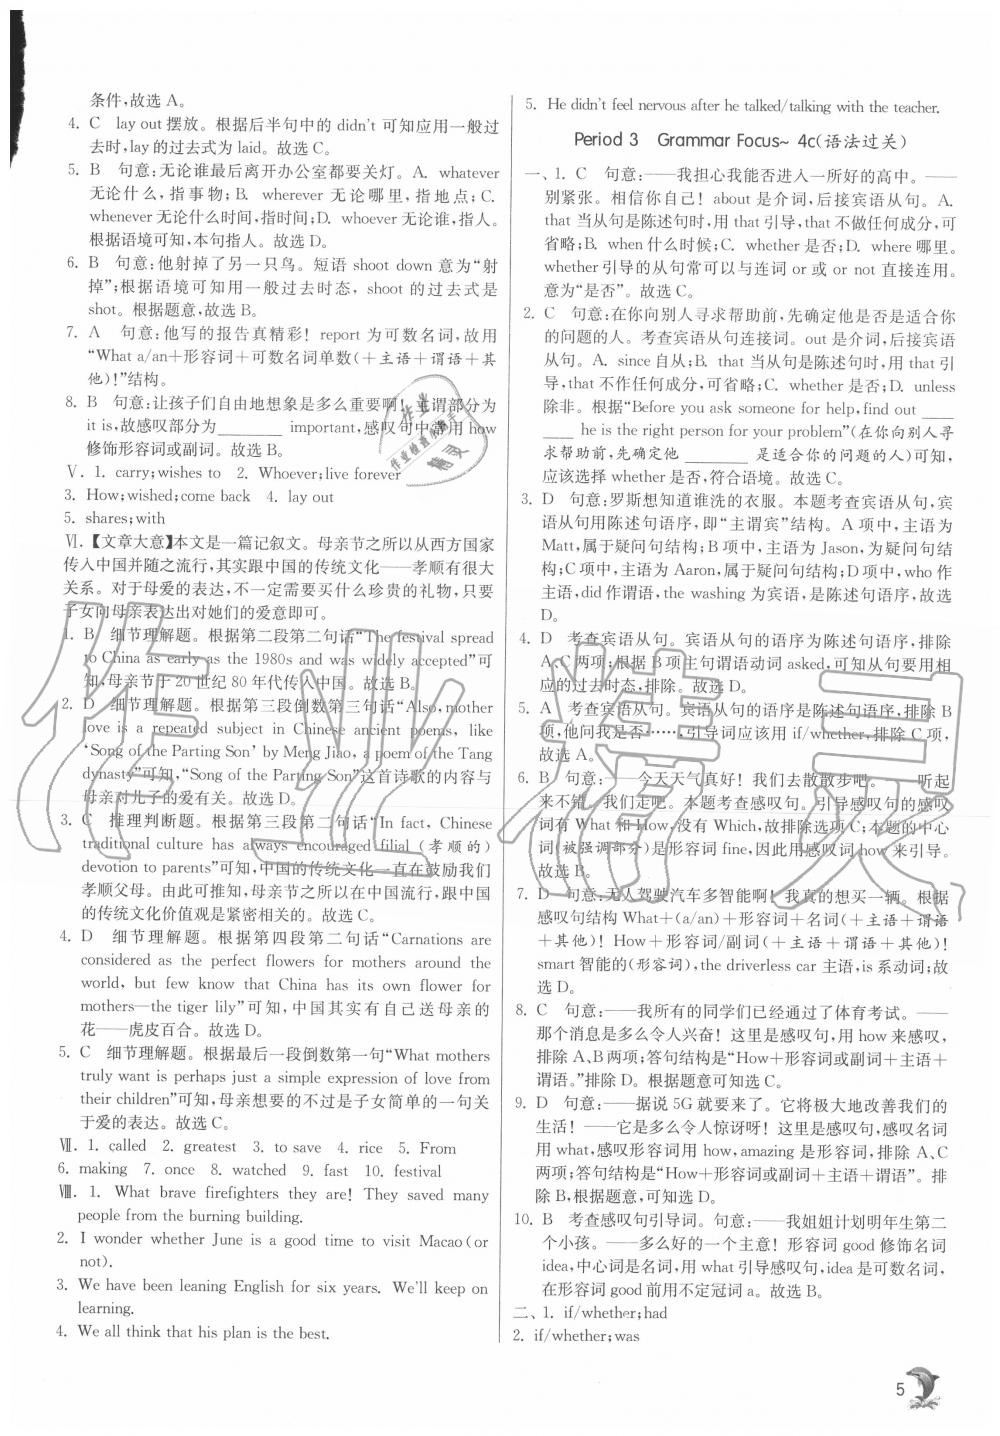 条件,故选 A。
4. C lay out 摆放。根据后半句中的 didn't 可知应用一般过
去时,lay 的过去式为 laid。故选 C。
5. B 句意:无论谁最后离开办公室都要关灯。A. whatever
无论什么,指事物;B. wherever 无论哪里,指地点;C.
whenever 无论什么时间,指时间;D. whoever 无论谁,指人。
根据语境可知,本句指人。故选 D。
6. B 句意:他射掉了另一只鸟。短语 shoot down 意为“射
掉”;根据语境可知用一般过去时态,shoot 的过去式是
shot。根据题意,故选 B。
7. A 句意:他写的报告真精彩! report 为可数名词,故用
“What a/an+形容词+可数名词单数(+主语+谓语+其
他)!”结构。
8. B 句意:让孩子们自由地想象是多么重要啊!主谓部分为
it is,故感叹部分为________ important,感叹句中常用 how
修饰形容词或副词。故选 B。
Ⅴ. 1. carry;wishes to 2. Whoever;live forever
3. How;wished;come back 4. lay out
5. shares;with
Ⅵ.【文章大意】本文是一篇记叙文。母亲节之所以从西方国家
传入中国并随之流行,其实跟中国的传统文化——孝顺有很大
关系。对于母爱的表达,不一定需要买什么珍贵的礼物,只要
子女向母亲表达出对她们的爱意即可。
1. B 细节理解题。根据第二段第二句话“The festival spread
to China as early as the 1980s and was widely accepted”可
知,母亲节于 20 世纪 80 年代传入中国。故选 B。
2. D 细节理解题。根据第三段倒数第三句话“Also, mother
love is a repeated subject in Chinese ancient poems, like
‘Song of the Parting Son’ by Meng Jiao, a poem of the Tang
dynasty”可知,“Song of the Parting Son”这首诗歌的内容与
母亲对儿子的爱有关。故选 D。
3. C 推理判断题。根据第三段第二句话“In fact, Chinese
traditional culture has always encouraged filial (孝顺的)
devotion to parents”可知,中国的传统文化一直在鼓励我们
孝顺父母。由此可推知,母亲节之所以在中国流行,跟中国
的传统文化价值观是紧密相关的。故选 C。
4. D 细节理解题。根据第四段第二句话“Carnations are
considered as the perfect flowers for mothers around the
world, but few know that China has its own flower for
mothers—the tiger lily”可知,中国其实有自己送母亲的
花——虎皮百合。故选 D。
5. C 细节理解题。根据最后一段倒数第一句“What mothers
truly want is perhaps just a simple expression of love from
their children”可知,母亲想要的不过是子女简单的一句关
于爱的表达。故选 C。
Ⅶ. 1. called 2. greatest 3. to save 4. rice 5. From
6. making 7. once 8. watched 9. fast 10. festival
Ⅷ. 1. What brave firefighters they are! They saved many
people from the burning building.
2. I wonder whether June is a good time to visit Macao(or
not).
3. We have been leaning English for six years. We'll keep on
learning.
4. We all think that his plan is the best.
5. He didn't feel nervous after he talked/talking with the teacher.
Period 3 Grammar Focus~ 4c(语法过关)
一、1. C 句意:——我担心我能否进入一所好的高中。——
别紧张。相信你自己! about 是介词,后接宾语从句。A.
that 当从句是陈述句时,用 that 引导,that 不做任何成分,可
省略;B. when 什么时候;C. whether 是否;D. where 哪里。
whether 引导的从句常可以与连词 or 或 or not 直接连用。
意为“是否”。故选 C。
2. C 句意:在你向别人寻求帮助前,先确定他是否是适合你
的问题的人。考查宾语从句连接词。out 是介词,后接宾语
从句。A. since 自从;B. that 当从句是陈述句时,用 that 引
导,that 不作任何成分,可省略;C. whether 是否;D. unless
除非。根据“Before you ask someone for help, find out ____
____ he is the right person for your problem”(在你向别人寻
求帮助前,先确定他 ________ 是适合你的问题的人)可知,
应该选择 whether 是否,符合语境。故选 C。
3. D 句意:罗斯想知道谁洗的衣服。本题考查宾语从句,宾
语从句用陈述句语序,即“主谓宾”结构。A 项中,主语为
Matt,属于疑问句结构;B 项中,主语为 Jason,为疑问句结
构;C 项中,主语为 Aaron,属于疑问句结构;D 项中,who 作
主语,did 作谓语,the washing 为宾语,是陈述句语序,故选
D。
4. D 考查宾语从句。宾语从句的语序为陈述句语序,排除
A、C 两项;根据 B 项主句谓语动词 asked,可知从句要用相
应的过去时态,排除。故选 D。
5. A 考查宾语从句。宾语从句的语序是陈述句语序,排除 B
项,他问我是否……,引导词应该用 if/whether,排除 C 项,
故选 A。
6. B 句意:——今天天气真好!我们去散散步吧。——听起
来不错。我们走吧。本题考查感叹句。引导感叹句的感叹
词有 What 和 How,没有 Which,故排除选项 C;本题的中心
词(被强调部分)是形容词 fine,因此用感叹词 how 来引导。
故选 B。
7. D 句意:无人驾驶汽车多智能啊!我真的想买一辆。根据
感叹句结构 What+(a/an)+形容词+名词(+主语+谓语
+其他)! How+形容词/副词(+主语+谓语+其他)!
smart 智能的(形容词),the driverless car 主语,is 系动词;故
选 D。
8. C 句意:——我所有的同学们已经通过了体育考试。——
那个消息是多么令人兴奋!这里是感叹句,用 how 来感叹,
排除 A、B 两项;答句结构是“How+形容词或副词+主语+
谓语。”排除 D。根据题意可知选 C。
9. D 句意:——据说 5G 就要来了。它将极大地改善我们的
生活!——它是多么令人惊讶呀!这里是感叹句,感叹名词
用 what,感叹形容词用 how,amazing 是形容词,排除 A、C
两项;答句结构是“How+形容词或副词+主语+谓语”。排
除 B,根据题意,可知选 D。
10. B 考查感叹句引导词。句意:——我姐姐计划明年生第二
个小孩。——多么好的一个主意!形容词 good 修饰名词
idea,中心词是名词,用 what 引导感叹句,idea 是可数名词,
在形容词 good 前用不定冠词 a。故选 B。
二、1. if/whether;had
2. if/whether;was
5
作业精灵